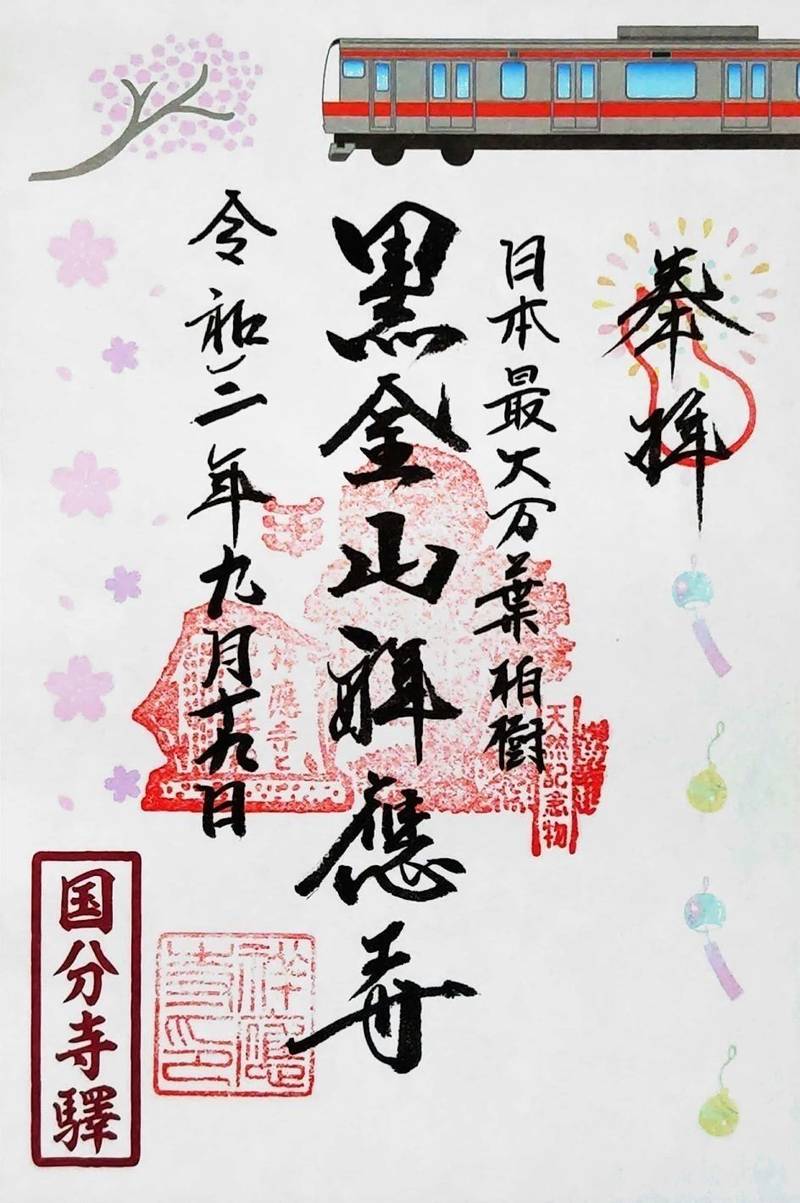 奉拝
日本最大万葉柏樹
天然記念物
黒金山祥應寺
祥應寺と
令和二年九月十九日
国分寺驛